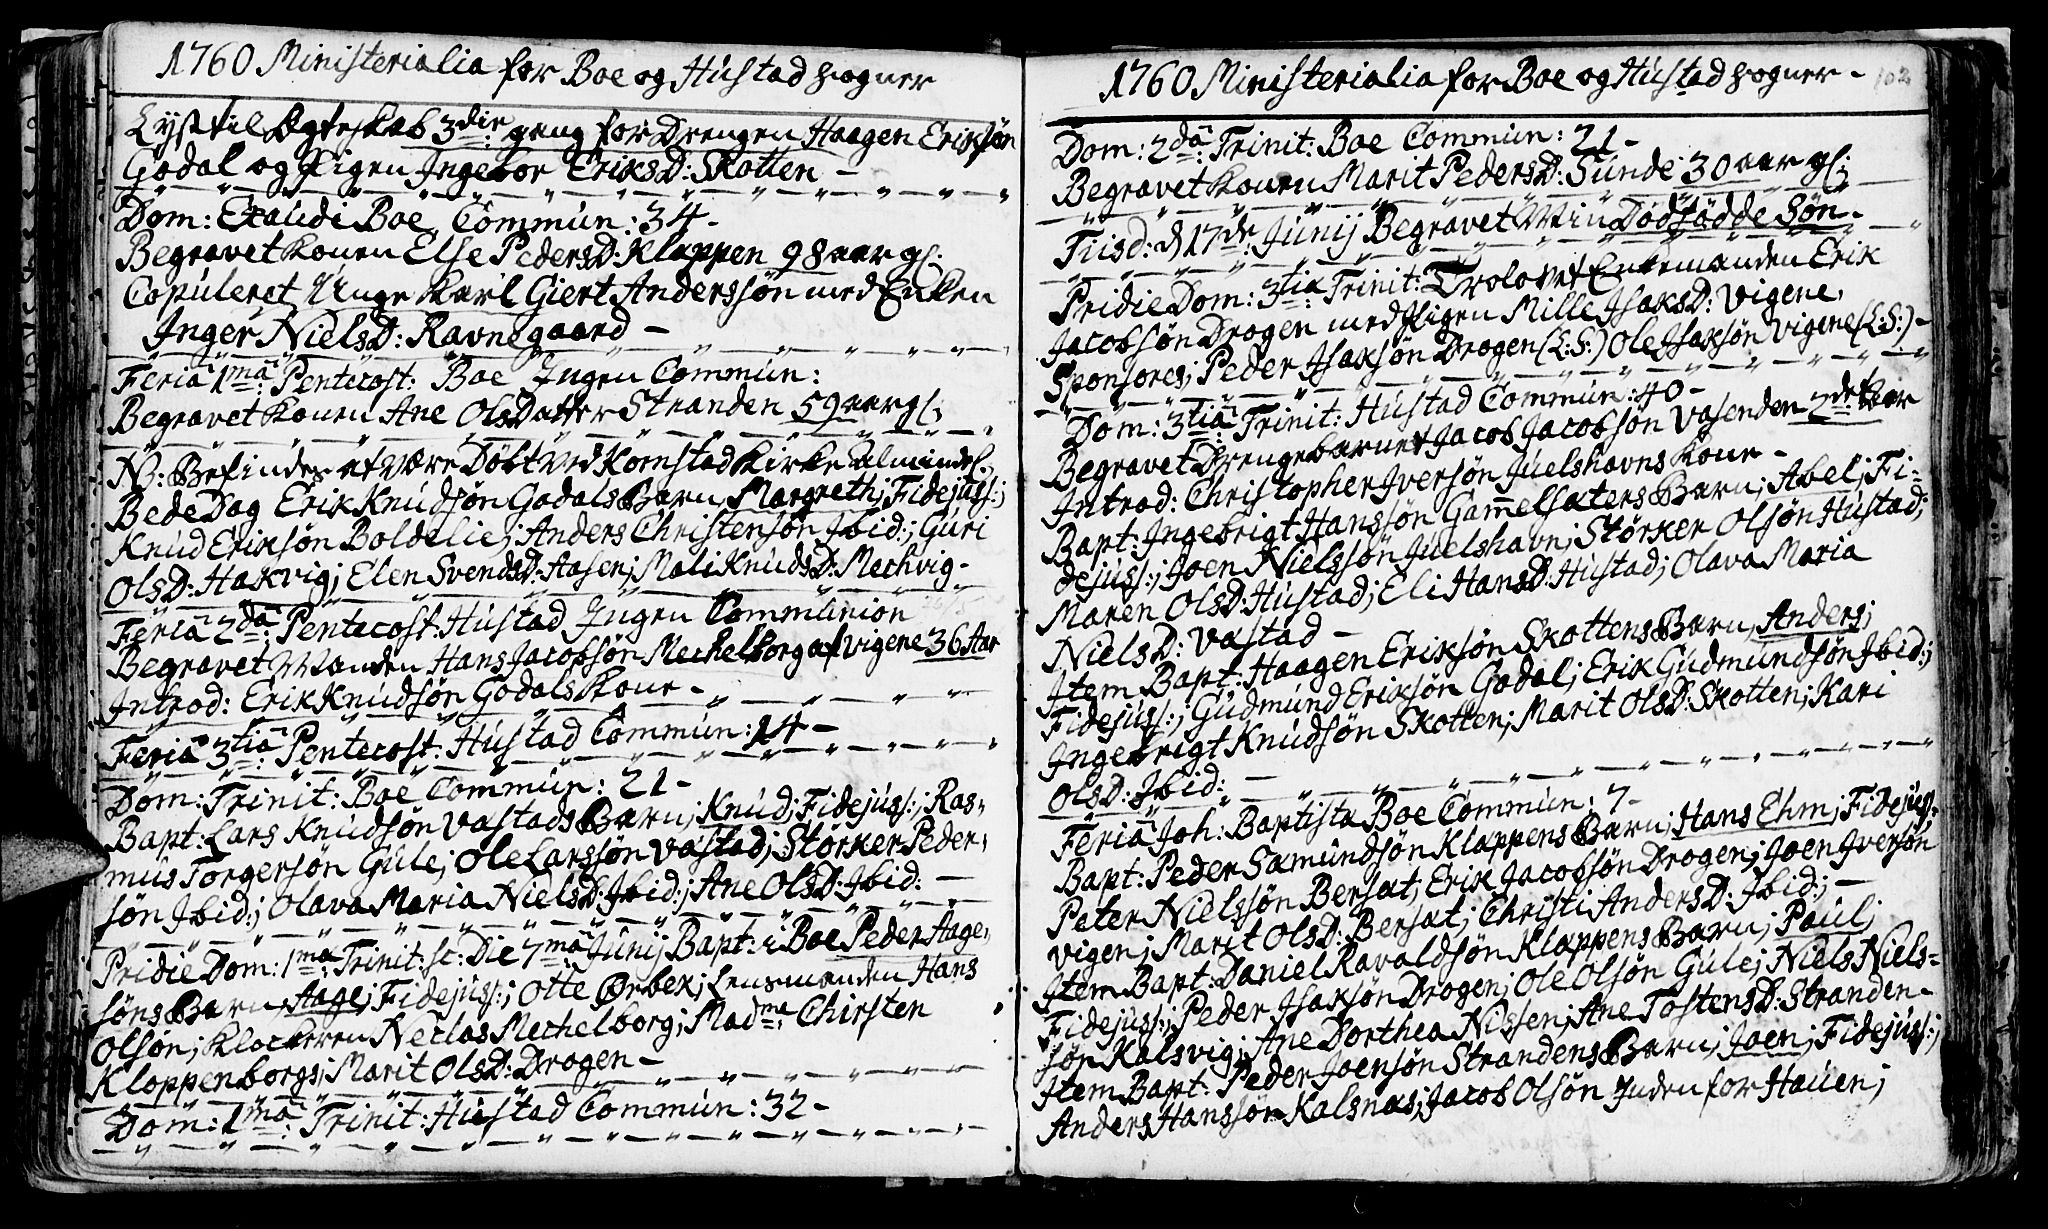 1760 Ministerialia for Boe og Hústad Sogner
Lyst til Ægteskab 3die: gang for Drengen Haagen Eriksøn
Godal og Pigen Ingebor EriksD: Skotten -
Dom: Exaúdi Boe Commún: 34 -
Begravet Konen Else PedersD: Klappen 98 aar gl:
Copúleret Únge Karl Giert Anderssøn med Enken
Inger NielsD: Ravnegaard -
Feria 1ma: Pentecost: Boe Ingen Commún:
Begravet Konen Ane OlsDatter Stranden 59 aar gl:
NB: Befindes at være Døbt ved Kornstad Kirke Almindel:
Bede Dag Erik Knúdsøn Godals Barn, Margreth; Fidejúss:;
Knúd Eriksøn Boldelie; Anders Christensøn Ibid:; Gúri
OlsD: Hakvig; Elen SvendsD: Aasen; Mali KnúdsD: Mechvig -
Feria 2da: Pentecost: Hústad Ingen Commúnion
Begravet Manden Hans Jacobsøn Mechelborg af Vigene 36 Aar
Introd: Erik Knúdsøn Godals Kone -
Feria 3tia: Pentecost: Hústad Commún: 14 -
Dom: Trinit: Boe Commún: 21 -
Bapt: Lars Knúdsøn Vastads Barn; Knúd; Fidejúss:; Ras,
mús Torgersøn Gúle; Ole Larssøn Vastad; Størker Peder,
søn Ibid:; Olava Maria NielsD: Ibid:; Ane OlsD: Ibid: -
Pridie Dom: 1ma: Trinit: sc: Die 7ma: Júnij Bapt: i Boe Peder Aage,
søns Barn Aage; Fidejúss:; Otte Ørbek; Lensmanden Hans
Olsøn; Klockeren Neclas Mechelborg; Madme: Chirsten
Kloppenborgs; Marit OlsD: Drogen -
Dom: 1ma: Trinit: Hústad Commún: 32 -
1760 Ministerialia for Boe og Hústad Sogner - 102
Dom: 2da: Trinit: Boe Commún: 21 -
Begravet Konen Marit PedersD: Súnde 30 aar gl:
Tiisd: d 17de: Júnij Begravet Min Dødfødde Søn -
Pridie Dom: 3tia: Trinit: Trolovet Enkemanden Erik
Jacobsøn Drogen med Pigen Mille IsaksD: Vigene,
Sponsores; Peder Isaksøn Drogen (L:S:) Ole Isaksøn Vigene (L:S:) -
Dom: 3tia: Trinit: Hústad Commún: 40 -
Begravet Drengebarnet Jacob Jacobsøn Vasenden 2de aar
Introd: Christopher Iversøn Júelshavns Kone -
Bapt: Ingebrigt Hanssøn Gamelsæters Barn; Abel; Fi-
dejúss:; Joen Nielssøn Júelshavn; Størker Olsøn Hústad;
Maren OlsD: Hústad; Eli HansD: Hústad; Olava Maria
NielsD: Vastad -
Item Bapt: Haagen Eriksøn Skottens Barn, Anders;
Fidejúss:; Gúdmúnd Eriksøn Godal; Erik Gúdmúndsøn Ibid:;
Ingebrigt Knúdsøn Skotten; Marit OlsD: Skotten; Kari
OlsD: Ibid: -
Feria Joh: Baptista Boe Commún: 7 -
Bapt: Peder Sæmúndsøn Klappens Barn; Hans Ehm; Fidejúss:
Peter Nielssøn Bersæt; Erik Jacobsøn Drogen; Joen Iversøn
Vigen; Marit OlsD: Bersæt; Christi AndersD: Ibid:; -
Item Bapt: Daniel Ravaldsøn Klappens Barn; Paúl;
Fidejúss:; Peder Isaksøn Drogen; Ole Olsøn Gúle; Niels Niels-
søn Kalsvig; Ane Dorthea Nissen; Ane TostensD: Stranden -
Item Bapt: Peder Joensøn Strandens Barn; Joen; Fidejúss:;
Anders Hanssøn Kalsnæs; Jacob Olsøn Inden for Haúen;